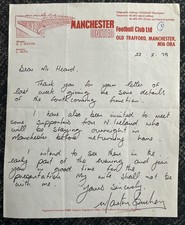 MANCHESTER
UNITED
Football Club Ltd
OLD TRAFFORD, MANCHESTER,
M16 0RA
Dear Mr Heard.
Thank you for your letter of
last week giving me some details
of the forthcoming function
I have also been invited to meet
some supporters from N. Ireland who
will be staying overnight in
Manchester before returning home
I intend to see them in the
early part of the evening and join
your good self in time for the
presentation. My wife shall not be
with me.
Yours Sincerely,
Martin Buchan